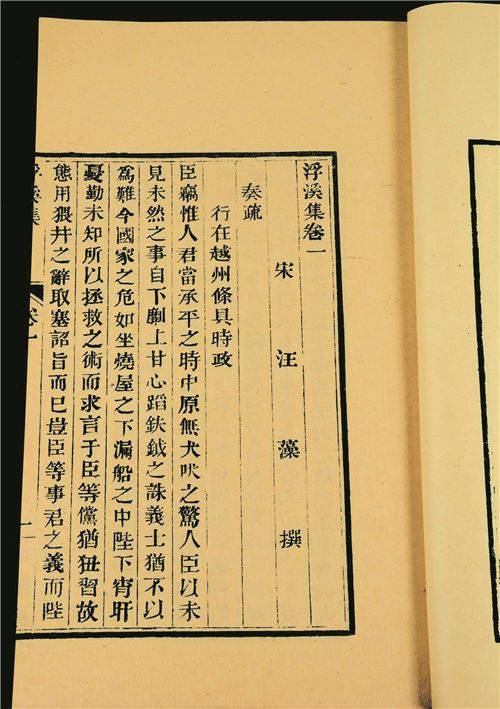 浮溪集卷一
宋汪藻撰
奏疏
行在越州條具時政
臣竊惟人君當承平之時中原無犬吠之驚人臣以未
見未然之事自下劘上甘心蹈鈇鉞之誅義士猶不以
爲難今國家之危如坐燒屋之下漏船之中陛下宵旰
憂勤未知所以拯救之術而求言于臣等儻猶狃習故
態用猥幷之辭取塞詔旨而已豈臣等事君之義而陛
浮溪集 卷一 一